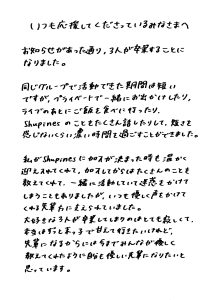 いつも応援してくださっているみなさまへ
お知らせがあった通り、3人が卒業することに
なりました。
同じグループで活動できた期間は短い
ですが、プライベートで一緒にお出かけしたり、
ライブのあとにご飯を食べに行ったり、
Shupinesのこともたくさん話したりして、短さを
感じないくらい濃い時間を過ごすことができました。
私がShupinesに加入が決まった時も温かく
迎え入れてくれて、加入してからはたくさんのことを
教えてくれて、一緒に活動していて迷惑をかけて
しまうこともありましたが、いつも優しく声をかけて
くれる先輩方に支えられていました。
大好きな3人が卒業してしまうのはとても寂しくて、
本当はずっとあっ子で甘えて行きたいけれど、
先輩になるからには今までみんなが優しく
教えてくれたように自分も優しい先輩になりたいと
思っています。